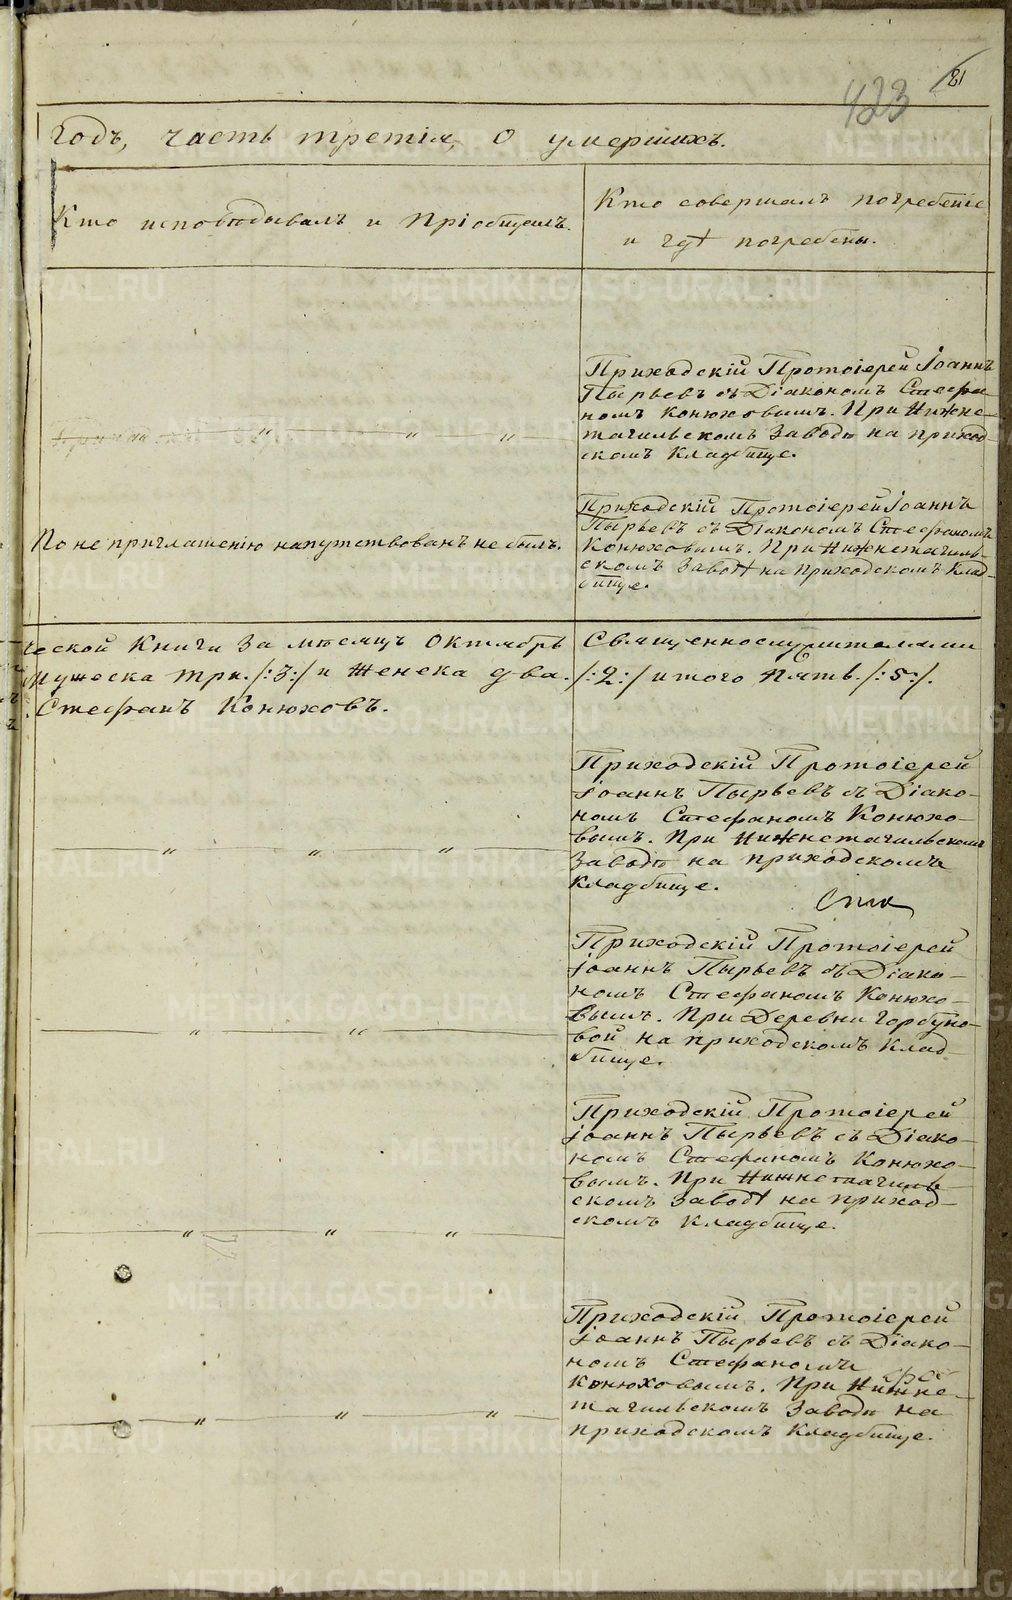 81
423
Годъ, часть третія, О умершихъ.
Кто исповѣдывалъ и Пріобщалъ.
Кто совершалъ погребеніе
и гдѣ погребены.
Приходскій Протоіерей Іоаннъ
Пырьевъ съ Діакономъ Стефа-
номъ Конюховымъ. При Нижне-
тагильскомъ Заводѣ на приход-
скомъ Кладбище.
Приходскій Протоіерей Іоаннъ
Пырьевъ съ Діакономъ Стефаномъ
Конюховымъ. При Нижнетагиль-
скомъ Заводѣ на приходскомъ Клад-
бище.
По не приглашенію напутствованъ не былъ.
ческой Книги За мѣсяцъ Октябрь Священнослужителями
Мужеска три. /:3:/ и Женска два. /:2:/ итого Пять. /:5:/.
Стефанъ Конюховъ.
Приходскій Протоіерей
Іоаннъ Пырьевъ съ Діако-
номъ Стефаномъ Конюхо-
вымъ. При Нижнетагильскомъ
Заводѣ на приходскомъ
Кладбище.
Приходскій Протоіерей
Іоаннъ Пырьевъ съ Діако-
номъ Стефаномъ Конюхо-
вымъ. При Деревни Горбуно-
вой на приходскомъ Клад-
бище.
Приходскій Протоіерей
Іоаннъ Пырьевъ съ Діако-
номъ Стефаномъ Конюхо-
вымъ. При Нижнетагиль-
скомъ Заводѣ на приход-
скомъ Кладбище.
Приходскій Протоіерей
Іоаннъ Пырьевъ съ Діако-
номъ Стефаномъ
Конюховымъ. При Нижне-
тагильскомъ Заводѣ на
приходскомъ Кладбище.
METRIKI.GASO-URAL.RU